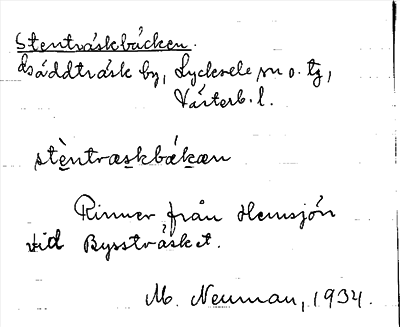 Stentråskbäcken.
Bäddträsk by, Lycksele sn o. tg,
Västerb. l.
stèntræskbǽkæn
Rinner från Hemsjön
vid Bysströsket.
M. Neuman, 1934.